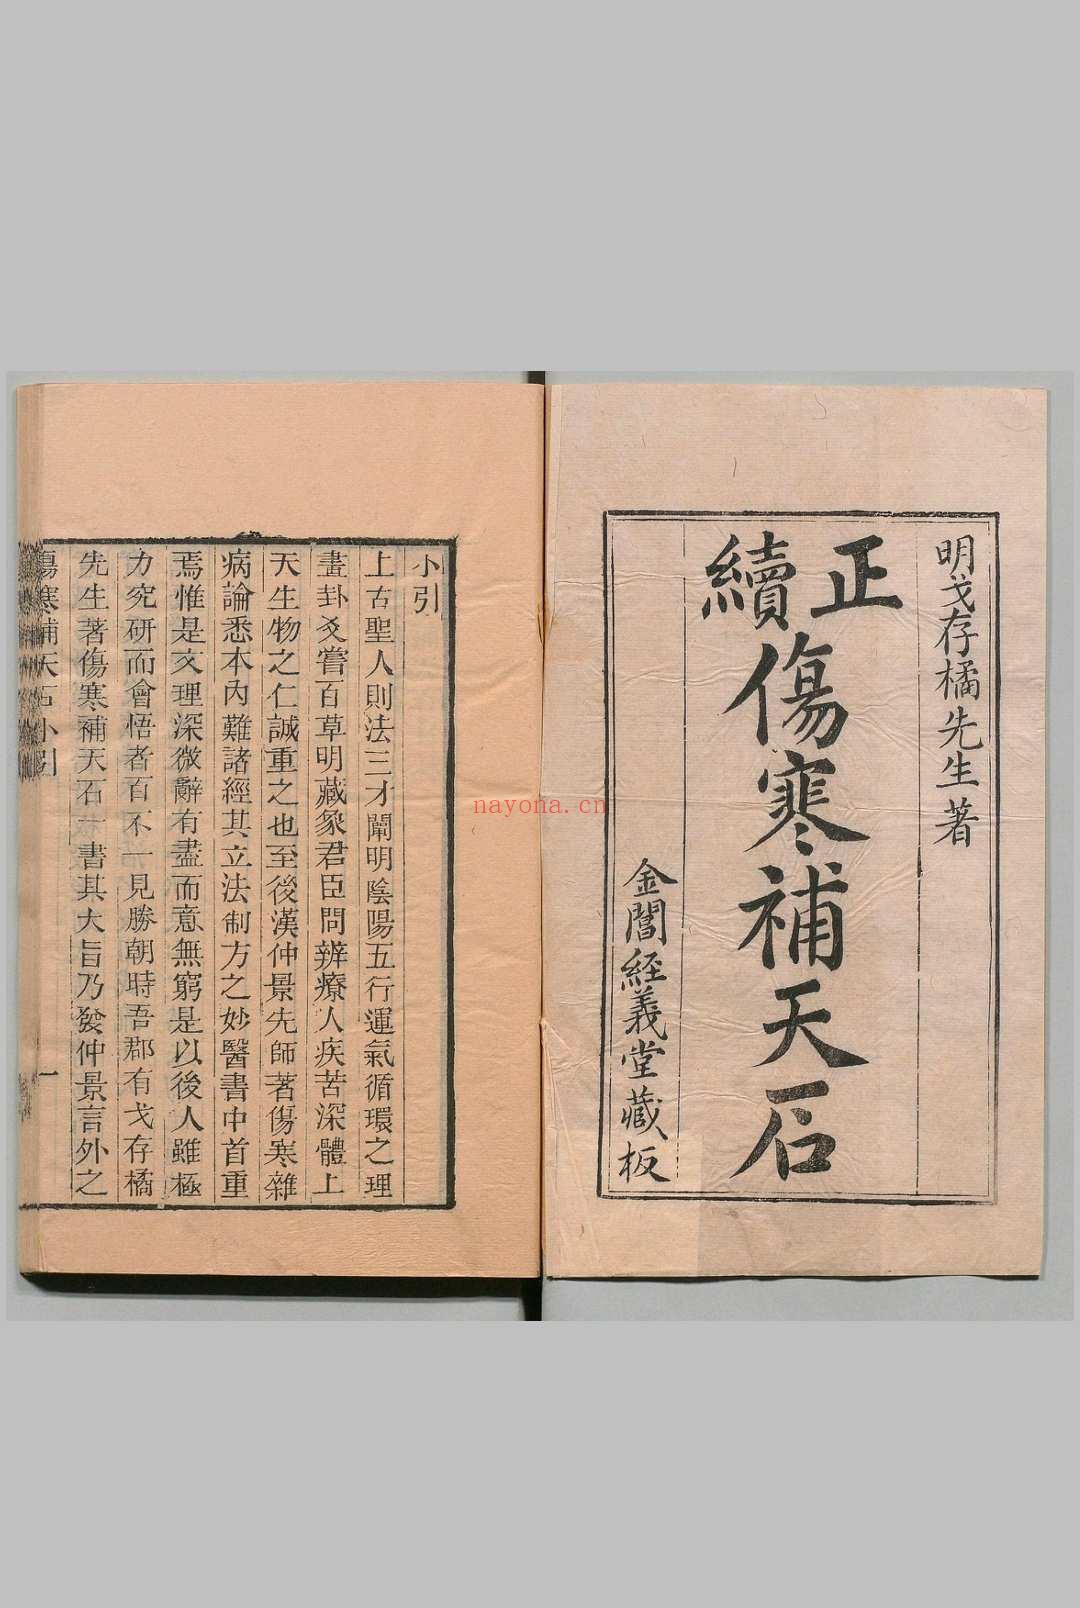 明戈存橘先生著
正續傷寒補天石
金閶經義堂藏板
小引
上古聖人則法三才闡明陰陽五行運氣循環之理
畫卦爻嘗百草明藏象君臣問辨療人疾苦深體上
天生物之仁誠重之也至後漢仲景先師著傷寒雜
病論悉本內難諸經其立法制方之妙醫書中首重
焉惟是文理深微辭有盡而意無窮是以後人雖極
力究研而會悟者百不一見勝朝時吾郡有戈存橘
先生著傷寒補天石一書其大旨乃發仲景言外之
傷寒補天石小引
一
nayona.cn